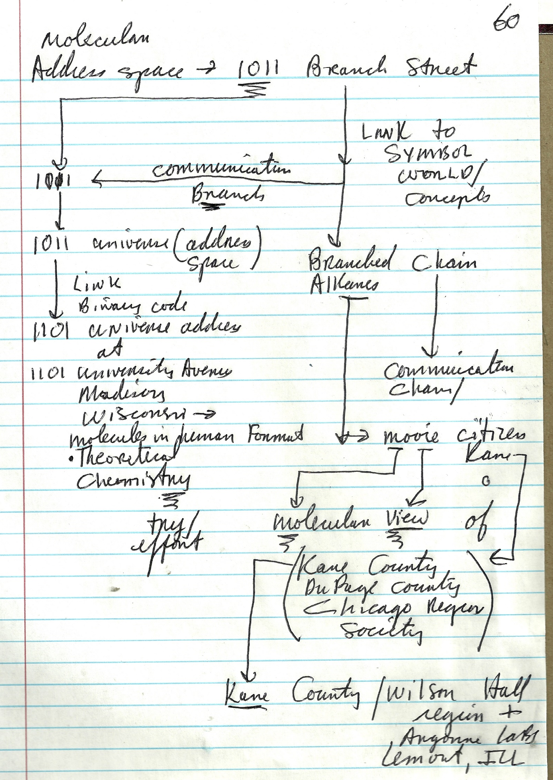 60
Molecular
Address space → 1011 Branch Street
Link to
Symbol
World/
Concepts
Communication
Branch
1011 universe (address
space)
Branched Chain
Alkanes
Link
Binary code
1101 universe address
at
1101 University Avenue
Madison
Wisconsin →
Communication
Chain/
molecules in human Format
→ movie citizen
Kane
• Theoretical
Chemistry
try/
effort
molecular View of
(Kane County
DuPage County
Chicago Region
Society)
Kane County /Wilson Hall
region +
Argonne Labs
Lemont, ILL